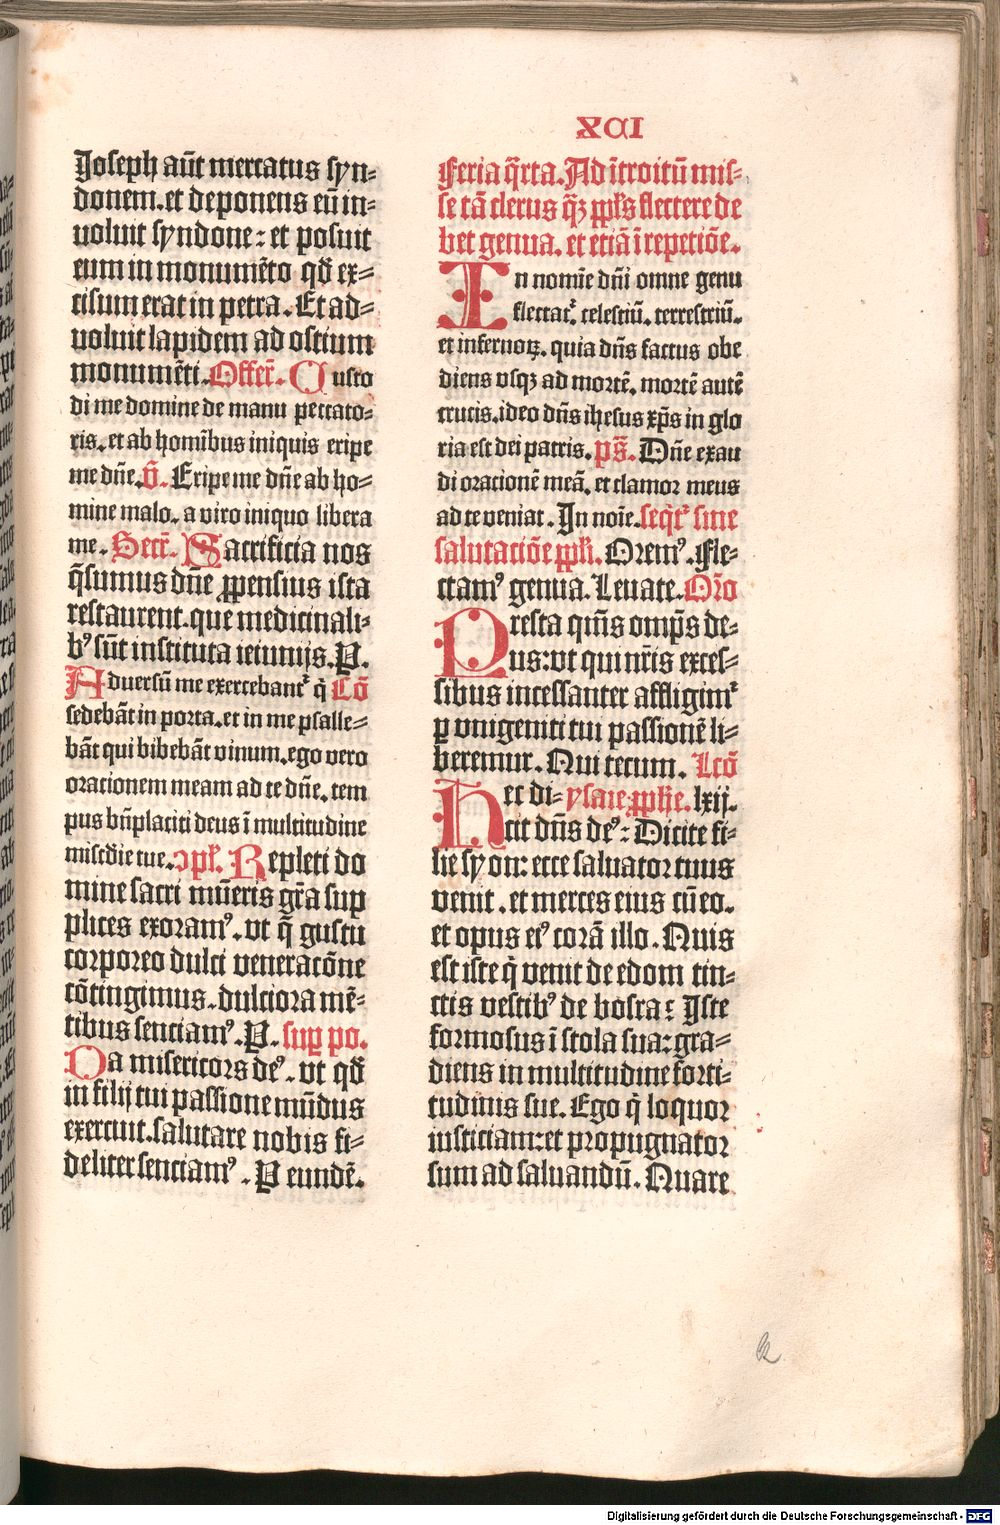 XCI
Joseph aūt mercatus syn⸗
donem.et deponens eū in⸗
voluit syndone: et posuit
eum in monumēto qđ ex⸗
cisum erat in petra. Et ad⸗
voluit lapidem ad ostium
monumēti. Offer̄. Custo
di me domine de manu peccato⸗
ris.et ab homībus iniquis eripe
me dn̄e. v̄. Eripe me dn̄e ab ho⸗
mine malo. a viro iniquo libera
me. Secr̄. Sacrificia nos
q̄sumus dn̄e ꝓpensius ista
restaurent.que medicinali⸗
bꝰ sūt instituta ieiunijs. P.
Aduersū me exercebantᷣ q̄ Cō
sedebāt in porta.et in me psalle⸗
bāt qui bibebāt vinum.ego vero
orationem meam ad te dn̄e. tem
pus bn̄placiti deus ī multitudine
misc̄die tue. ↄpł. Repleti do
mine sacri mūeris gr̄a sup
plices exoramꝰ. vt q̄ gustu
corporeo dulci veneracōne
cōtingimus. dulciora mē⸗
tibus senciamꝰ. P. suꝑ po.
Da misericors deꝰ. vt qđ
in filij tui passione mūdus
exercuit.salutare nobis fi⸗
deliter senciamꝰ. P eundē.
Feria q̄rta. Ad ītroitū mis⸗
se tā clerus qꝫ ppl̄s flectere de
bet genua. et etiā ī repetiōe.
In nomīe dn̄i omne genu
flectatᷣ. celestiū. terrestriū.
et infernoꝝ. quia dn̄s factus obe
diens vsqꝫ ad mortē. mortē autē
crucis.ideo dn̄s ihesus xp̄s in glo
ria est dei patris. ps̄. Dn̄e exau
di orationē meā. et clamor meus
ad te veniat. In noīe. seq̄tᷣ sine
salutatiōe ppl̄i. Oremꝰ. Fle⸗
ctamꝰ genua. Leuate. Or̄o
Presta qm̄s omp̄s de⸗
us:vt qui nr̄is exces⸗
sibus incessanter affligimᷣ
ꝑ vnigeniti tui passionē li⸗
beremur. Qui tecum. Lcō
Hec di⸗ ysaie ꝓph̄e. lxij.
cit dn̄s deꝰ: Dicite fi⸗
lie syon: ecce saluator tuus
venit. et merces eius cū eo.
et opus eiꝰ corā illo. Quis
est iste q̄ venit de edom tin⸗
ctis vestibꝰ de bosra: Iste
formosus ī stola sua: gra⸗
diens in multitudine forti⸗
tudinis sue. Ego q̄ loquor
iusticiam:et propugnator
sum ad saluandū. Quare
Digitalisierung gefördert durch die Deutsche Forschungsgemeinschaft - DFG